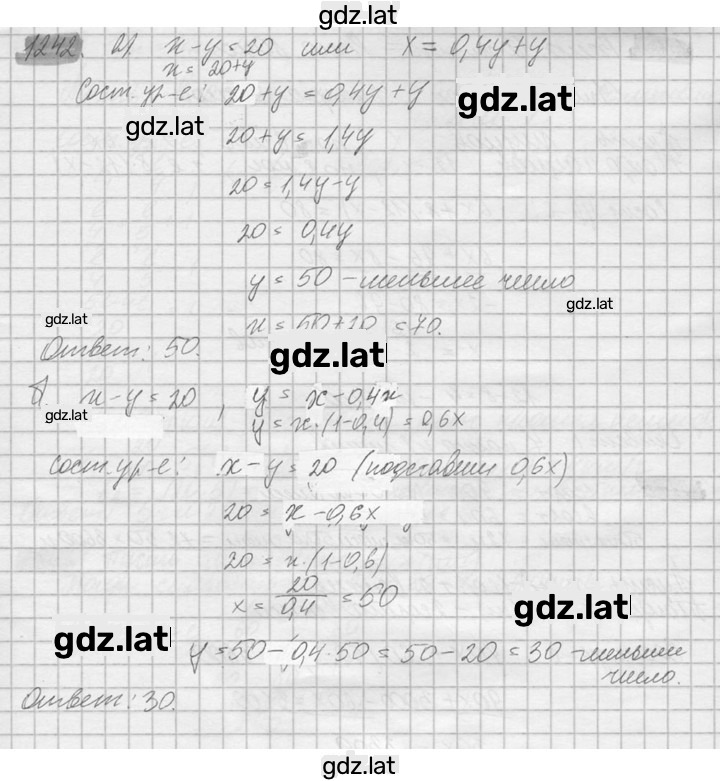 gdz.latl
1242. а) x-y=20 или x=0,4y+y
x=20+y
Сост. ур-е: 20+y=0,4y+y
gdz.latl
gdz.latl
20+y=1,4y
20=1,4y-y
20=0,4y
y=50 - меньшее число
gdz.latl
gdz.latl
x= =70.
Ответ: 50.
gdz.latl
б). x-y=20, y=x-0,4x
gdz.latl
y=x·(1-0,4)=0,6x
Сост. ур-е: x-y=20 (подставим 0,6x)
20=x-0,6x
20=x·(1-0,6)
x=20/0,4=50
gdz.latl
gdz.latl
y=50-0,4·50=50-20=30 - меньшее
число.
Ответ: 30.
gdz.latl